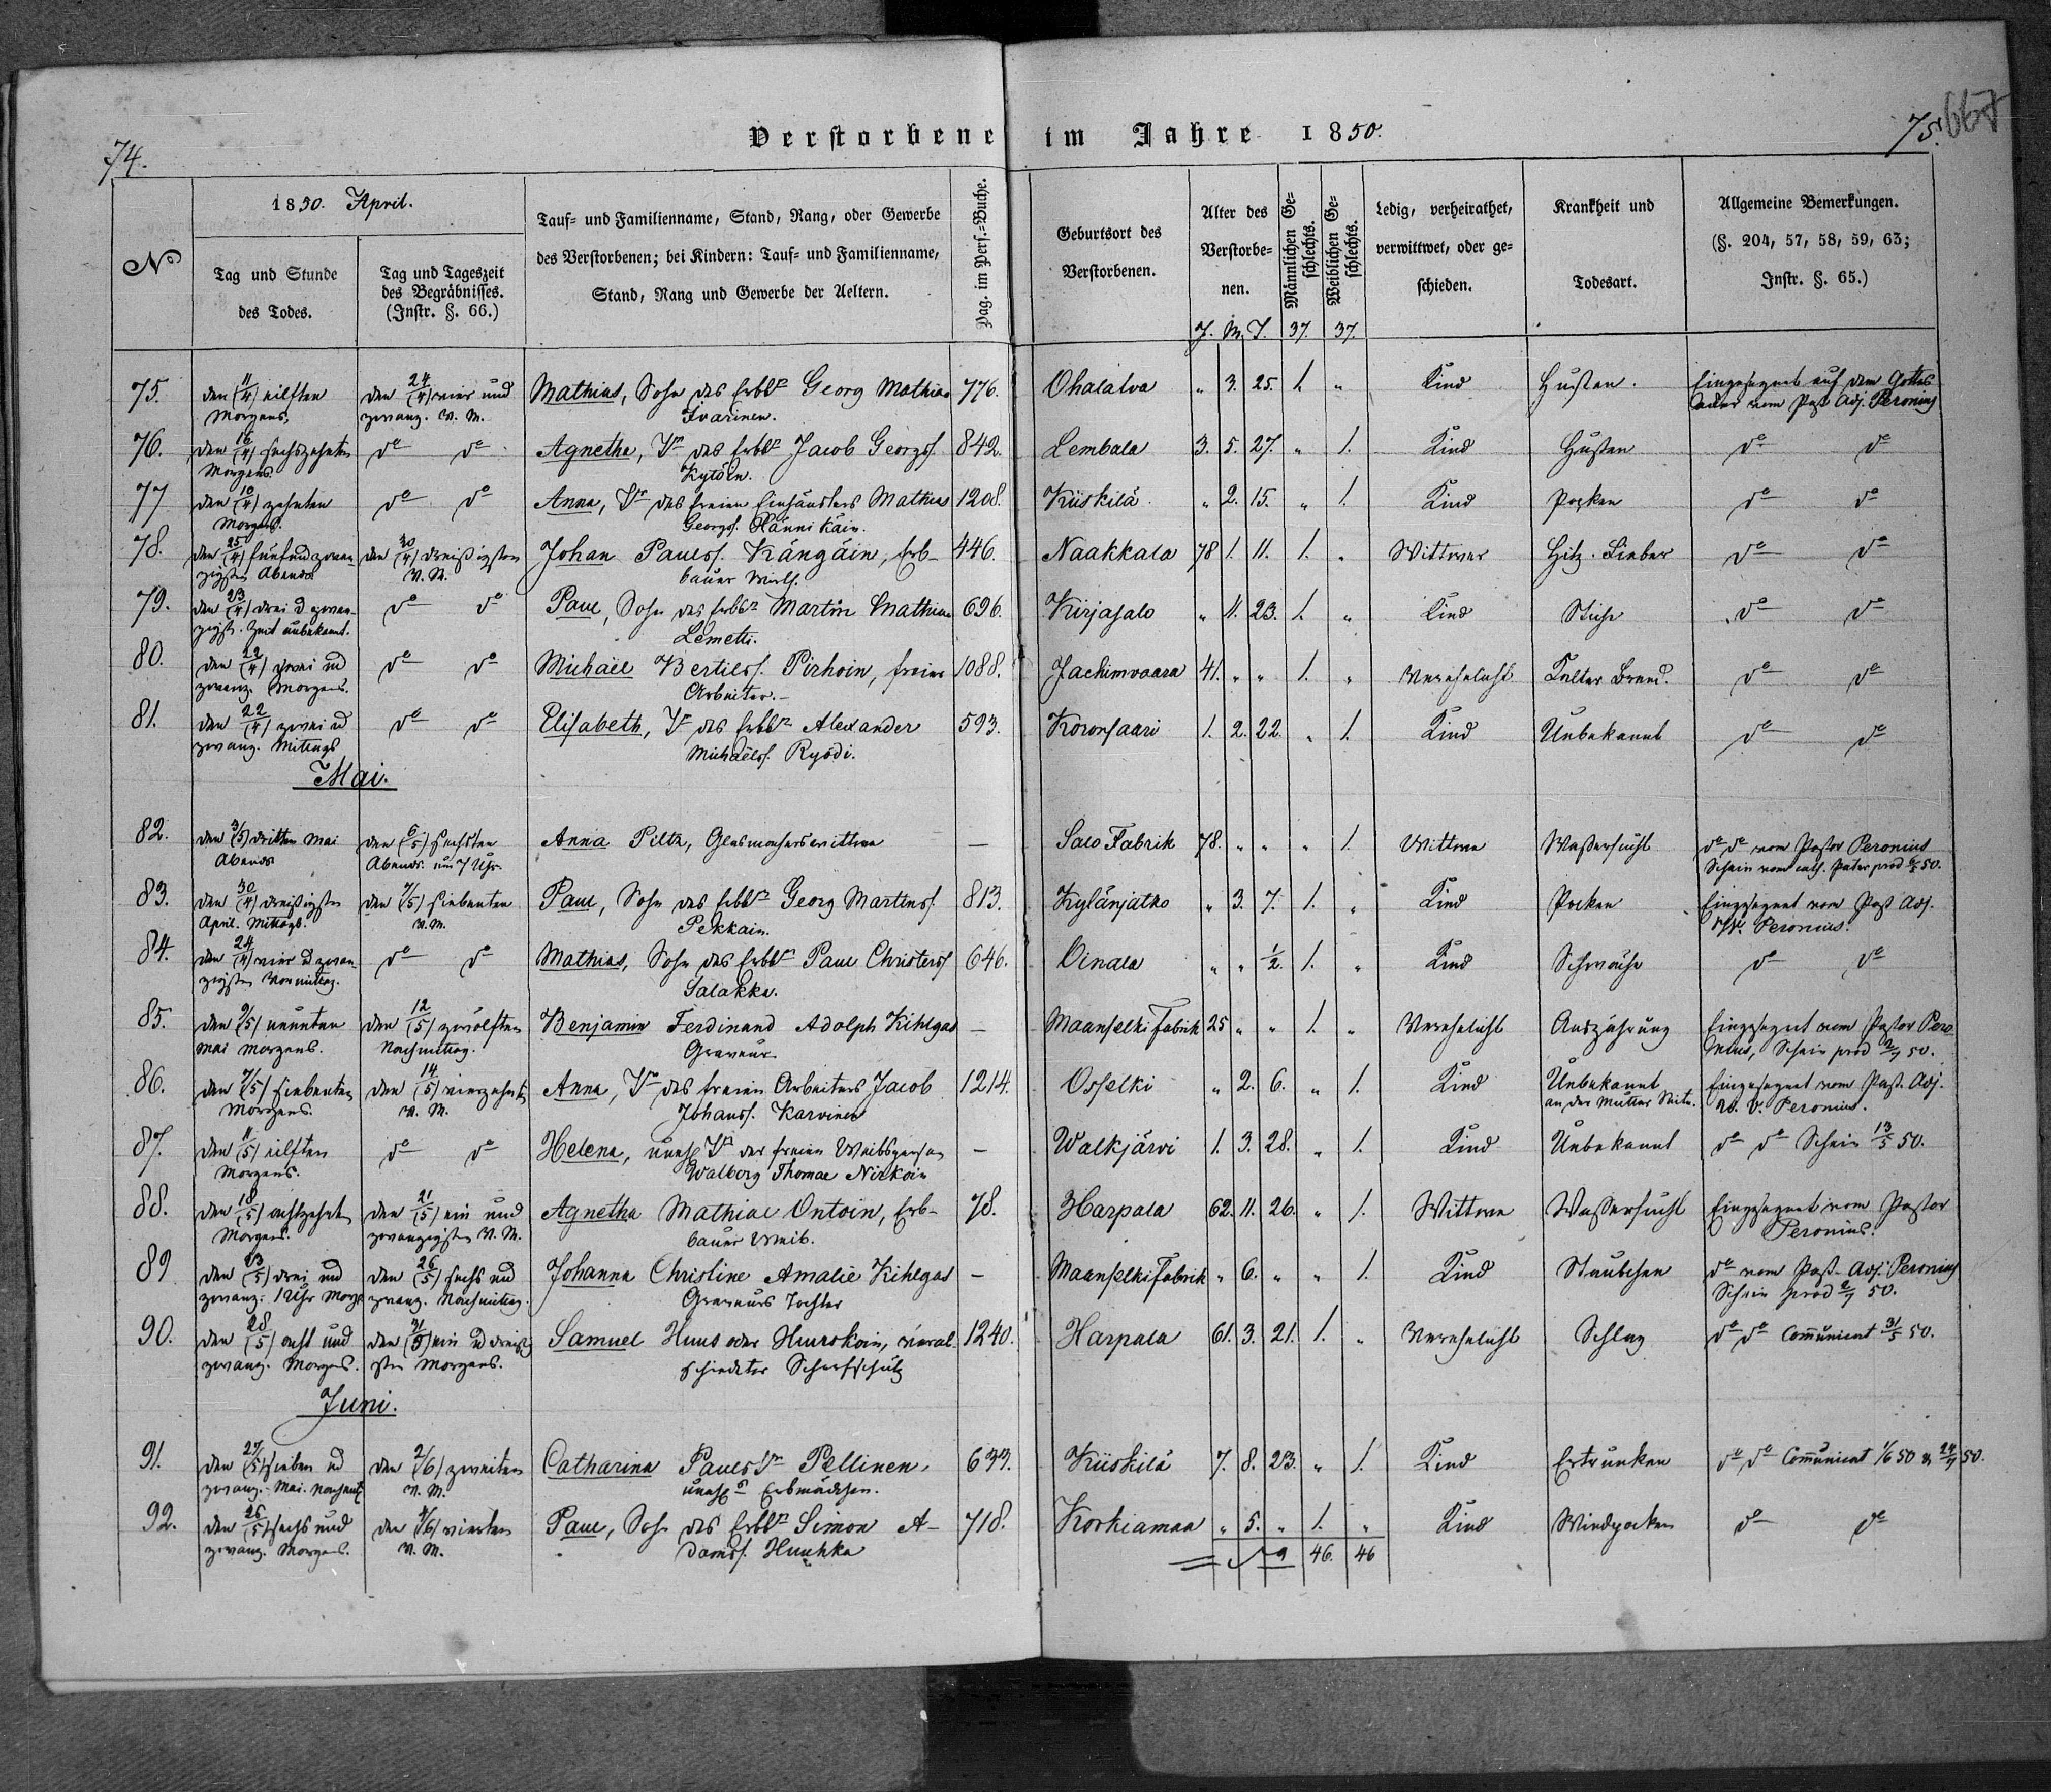 Verstorbene im Jahre 1850.
74.
75.
1850. April.
No
Tag und Stunde des Todes.
Tag und Tageszeit des Begräbnisses. (Instr. §. 66.)
Tauf- und Familienname, Stand, Rang, oder Gewerbe
des Verstorbenen; bei Kindern: Tauf- und Familienname,
Stand, Rang und Gewerbe der Aeltern.
Pag. im Pers.-Buche.
Geburtsort des Verstorbenen.
Alter des Verstorbenen.
J. M. T.
Männlichen Geschlechts.
37.
Weiblichen Geschlechts.
37.
Ledig, verheirathet, verwittwet, oder geschieden.
Krankheit und Todesart.
Allgemeine Bemerkungen.
(§. 204, 57, 58, 59, 63;
Instr. §. 65.)
75. den (11/4) eilften den (24/4) vier und Mathias, Sohn des Erbbr Georg Mathiae 776. Ohalatva " 3. 25. 1. " Kind Husten. Eingesegnet auf dem Gottes
Morgens. zwanz. V. M. Ivarinen. acker vom Past. Adj. Peronius
76. den (16/4) sechszehnten do do Agnetha, Tr des Erbbr Jacob Georgs. 842. Lembala 3. 5. 27. " 1. Kind Husten do do
Morgens. Kytöin.
77 den (10/4) zehnten do do Anna, Tr des freien Mathias 1208. Kiiskilä " 2. 15. " 1. Kind Pocken do do
Morgens. Georgs. Hännikäin.
78. den (25/4) fünfundzwan- den (30/4) dreißigsten Johan Paulss. Kängäin, Erb- 446. Naakkala 78 1. 11. 1. " Wittwer Hitz. Fieber do do
zigsten Abends V. M. bauer Wirth.
79. den (23/4) drei u zwan- do do Paul, Sohn des Erbbr Martin Mathiae 696. Kirjasalo " 11. 23. 1. " Kind Stiche do do
zigst. Zeit unbekannt. Lemetti.
80. den (22/4) zwei ud do do Michael Bertilss. Pirhoin, freier 1088. Jachimvaara 41. " " 1. " Verehelicht Kalter Brand. do do
zwanz. Morgens. Arbeiter.
81. den (22/4) zwei ud do do Elisabeth, Tr des Erbbr Alexander 593. Koronsaari 1. 2. 22. " 1. Kind Unbekannt do do
zwanz. Mittags Michaëlss. Ryödi.
Mai.
82. den (3/5) dritten Mai den (6/5) sechsten Anna Piltz, Glasmachers wittwe — Salo Fabrik 78. " " " 1. Wittwe Wassersucht do do vom Pastor Peronius
Abends Abends um 7 Uhr. Schein vom cath. Pater prod 50.
83. den (30/4) dreißigsten den (7/5) siebenten Paul, Sohn des Erbbr Georg Martinss. 813. Kylänjatko " 3. 7. 1. " Kind Pocken Eingesegnet vom Past. Adj.
April. Mittags. V. M. Pekkain. Peronius.
84. den (24/4) vier u zwan- do do Mathias, Sohn des Erbbr Paul Christerss. 646. Oinala " " 1/2. 1. " Kind Schwäche do do
zigsten Vormittag. Salakka.
85. den (9/5) neunten den (12/5) zwölften Benjamin Ferdinand Adolph Kihlgas — Maanselki Fabrik 25 " " 1. " Verehelicht Auszehrung Eingesegnet vom Pastor Pero-
Mai Morgens. Nachmittag. Graveur. nius, Schein prod 2/7 50.
86. den (7/5) siebenten den (14/5) vierzehnten Anna, Tr des freien Arbeiters Jacob 1214. Osselki " 2. 6. " 1. Kind Unbekannt Eingesegnet vom Past. Adj.
Morgens. V. M. Johanss. Karvinen an der Mutter Seite. Peronius.
87. den (11/5) eilften do do Helena, unehl Tr der freien Weibsperson — Walkjärvi 1. 3. 28. " 1. Kind Unbekannt do do Schein 13/5 50.
Morgens. Walborg Thomae Nirkoin
88. den (18/5) achtzehnt den (21/5) ein und Agnetha Mathiae Ontoin, Erb- 78. Harpala 62. 11. 26. " 1. Wittwe Wassersucht Eingesegnet vom Pastor
Morgens. zwanzigsten V. M. bauer Weib. Peronius.
89 den (23/5) drei ud den (26/5) sechs und Johanna Christine Amalie Kihlgas — Maanselki Fabrik " 6. " " 1. Kind Staubchen do vom Past. Adj. Peronius
zwanz. 1 Uhr Morg. zwanz. Nachmittag. Graveurs Tochter Schein prod 2/7 50.
90. den (28/5) acht und den (31/5) ein u dreißig Samuel Huus oder Huuskoin, verab- 1240. Harpala 61. 3. 21. 1. " Verehelicht Schlag do do Communicat 31/5 50.
zwanz. Morgens. sten Morgens. schiedeter Scharfschütz
Juni.
91. den (27/5) sieben ud den (2/6) zweiten Catharina Pauls Tr Pellinen, 633. Kiiskilä 7. 8. 23. " 1. Kind Ertrunken do do Communicat 1/6 50 & 24/7 50.
zwanz. Mai. V. M. unehl Erbmädchen.
92. den (26/5) sechs und den (4/6) vierten Paul, Sohn des Erbbr Simon A- 718. Korkiamaa " 5. " 1. " Kind Windpocken do do
zwanz. Morgens. V. M. damss. Huuhka
46. 46